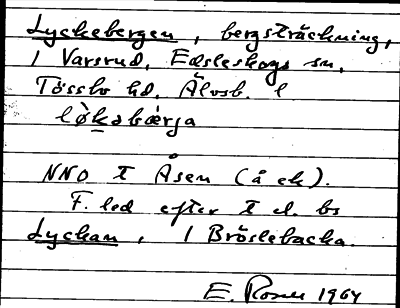 Lyckebergen, bergsträckning,
i Varsrud, Edsleskogs sn,
Tössbo hd, Älvsb. l
NNO t Åsen (å ek).
F. led efter t el. bs
Lyckan, i Bröslebacka.
E. Rosén 1964